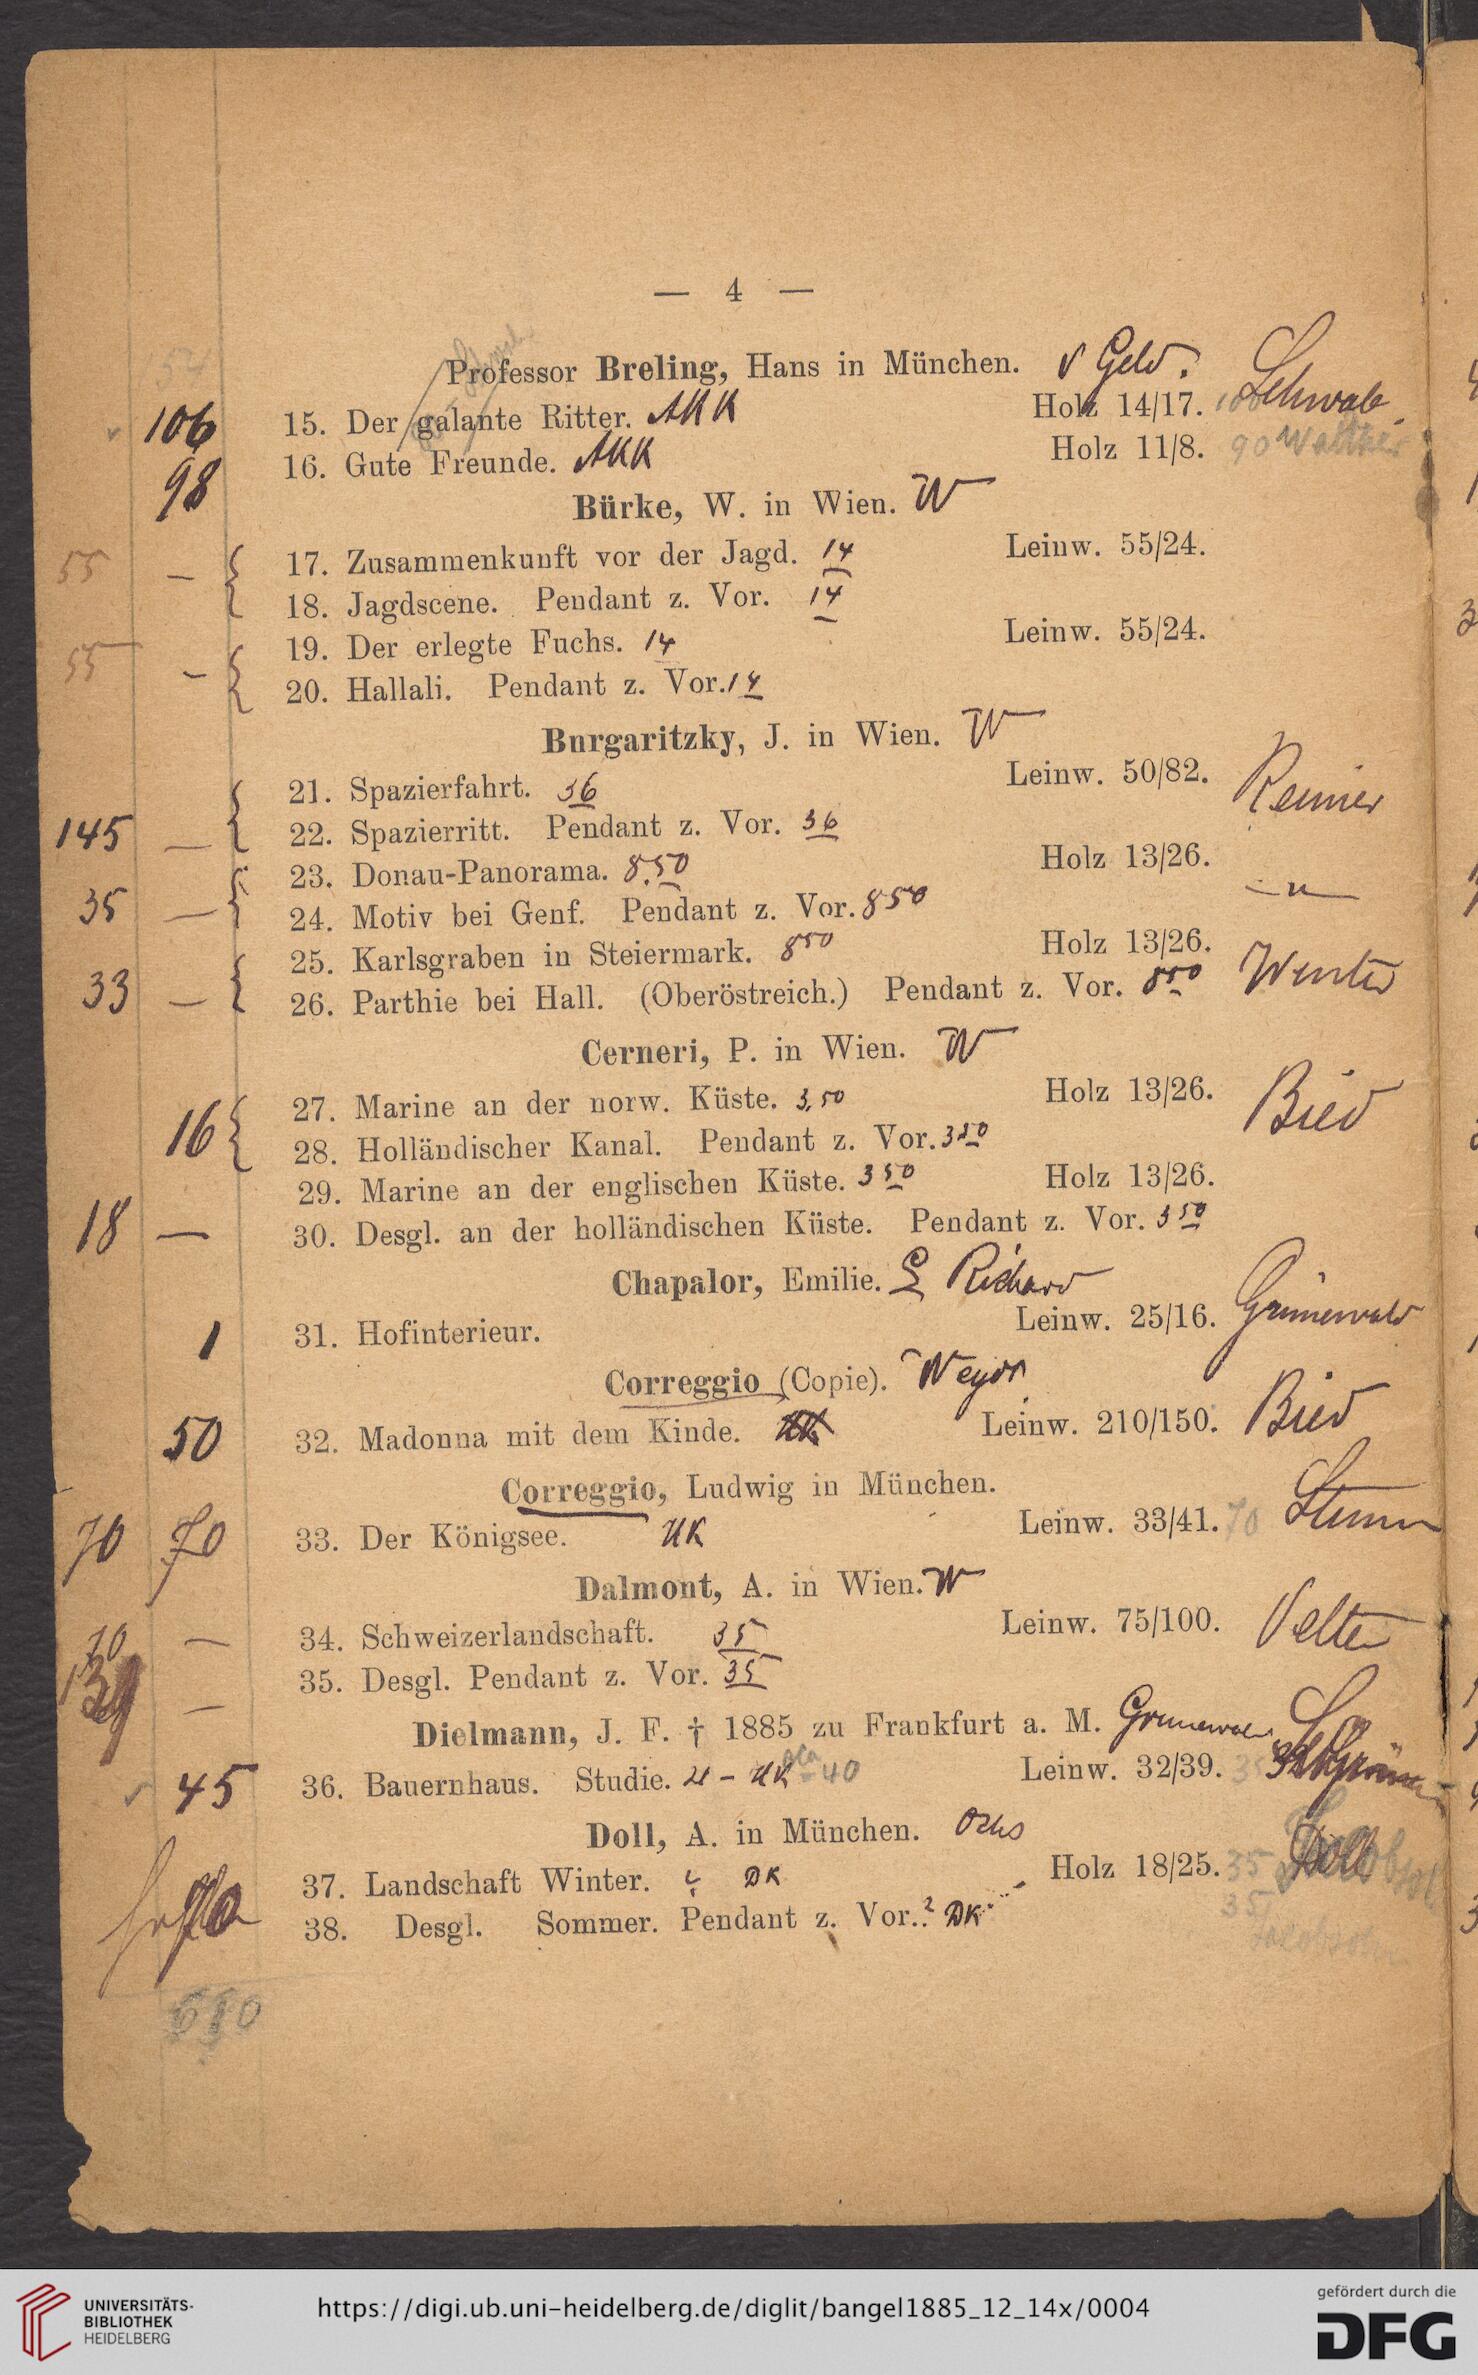 — 4 —
Professor Breling, Hans in München. v Geld.
106 15. Der galante Ritter. AKK Holz 14/17. 100 Schwab
98 16. Gute Freunde. AKK Holz 11/8. 90 Walther
Bürke, W. in Wien. W
55 — { 17. Zusammenkunft vor der Jagd. 14 Leinw. 55/24.
18. Jagdscene. Pendant z. Vor. 14
55 — { 19. Der erlegte Fuchs. 14 Leinw. 55/24.
20. Hallali. Pendant z. Vor. 14
Burgaritzky, J. in Wien. W
{ 21. Spazierfahrt. 36 Leinw. 50/82.
145 — 22. Spazierritt. Pendant z. Vor. 36
{ 23. Donau-Panorama. 8.50 Holz 13/26.
35 — 24. Motiv bei Genf. Pendant z. Vor. 850
25. Karlsgraben in Steiermark. 850 Holz 13/26.
33 — { 26. Parthie bei Hall. (Oberöstreich.) Pendant z. Vor. 850 Winter
Cerneri, P. in Wien. W
16 { 27. Marine an der norw. Küste. 3,50 Holz 13/26. Bied
28. Holländischer Kanal. Pendant z. Vor. 350
29. Marine an der englischen Küste. 350 Holz 13/26.
18 — 30. Desgl. an der holländischen Küste. Pendant z. Vor. 350
Chapalor, Emilie. Richard
1 31. Hofinterieur. Leinw. 25/16. Grünewald
Correggio (Copie).
50 32. Madonna mit dem Kinde. Leinw. 210/150. Bied
Correggio, Ludwig in München.
70 70 33. Der Königsee. UK Leinw. 33/41. 70
Dalmont, A. in Wien. W
70 — 34. Schweizerlandschaft. 35 Leinw. 75/100. Velte
— 35. Desgl. Pendant z. Vor. 35
Dielmann, J. F. † 1885 zu Frankfurt a. M.
45 36. Bauernhaus. Studie. UK 40 Leinw. 32/39. 35
Doll, A. in München. Ochs
37. Landschaft Winter. DK Holz 18/25. 35
38. Desgl. Sommer. Pendant z. Vor. ? DK 35 Jacobsohn
UNIVERSITÄTS-
BIBLIOTHEK
HEIDELBERG
https://digi.ub.uni-heidelberg.de/diglit/bangel1885_12_14x/0004
gefördert durch die
DFG